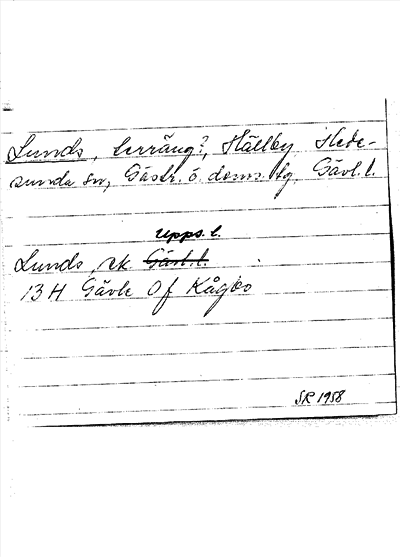 Lunds, terräng?, Hällby Hede-
sunda sn, Gästr. ö. doms. tg. Gävl. l.
Upps. l.
Lunds, ek Gävl. l.
13 H Gävle 0 f Kågbo
SR 1958